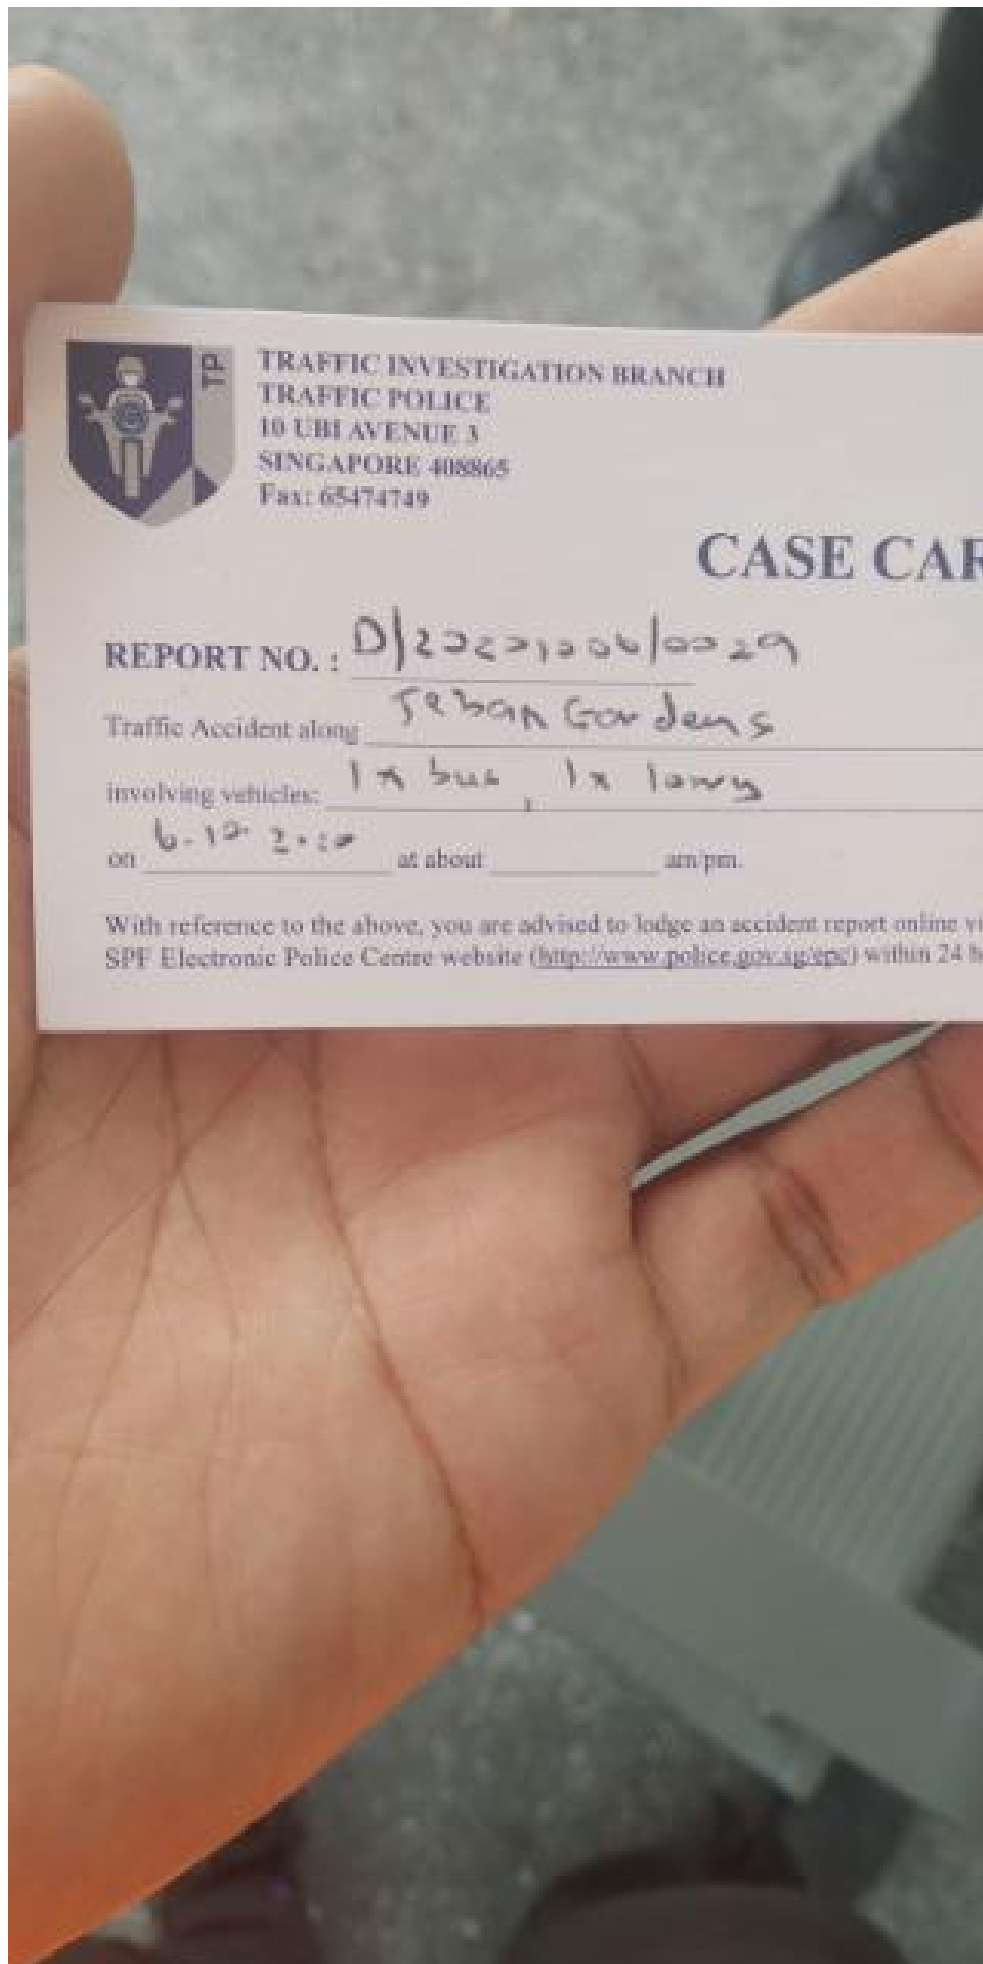 TP
TRAFFIC INVESTIGATION BRANCH
TRAFFIC POLICE
10 UBI AVENUE 3
SINGAPORE 408865
Fax: 65474749
CASE CAR
REPORT NO. : D/20201006/0029
Traffic Accident along Teban Gardens
involving vehicles: 1x bus, 1x lorry
on at about am/pm.
With reference to the above, you are advised to lodge an accident report online vi
SPF Electronic Police Centre website (http://www.police.gov.sg/epc) within 24 h